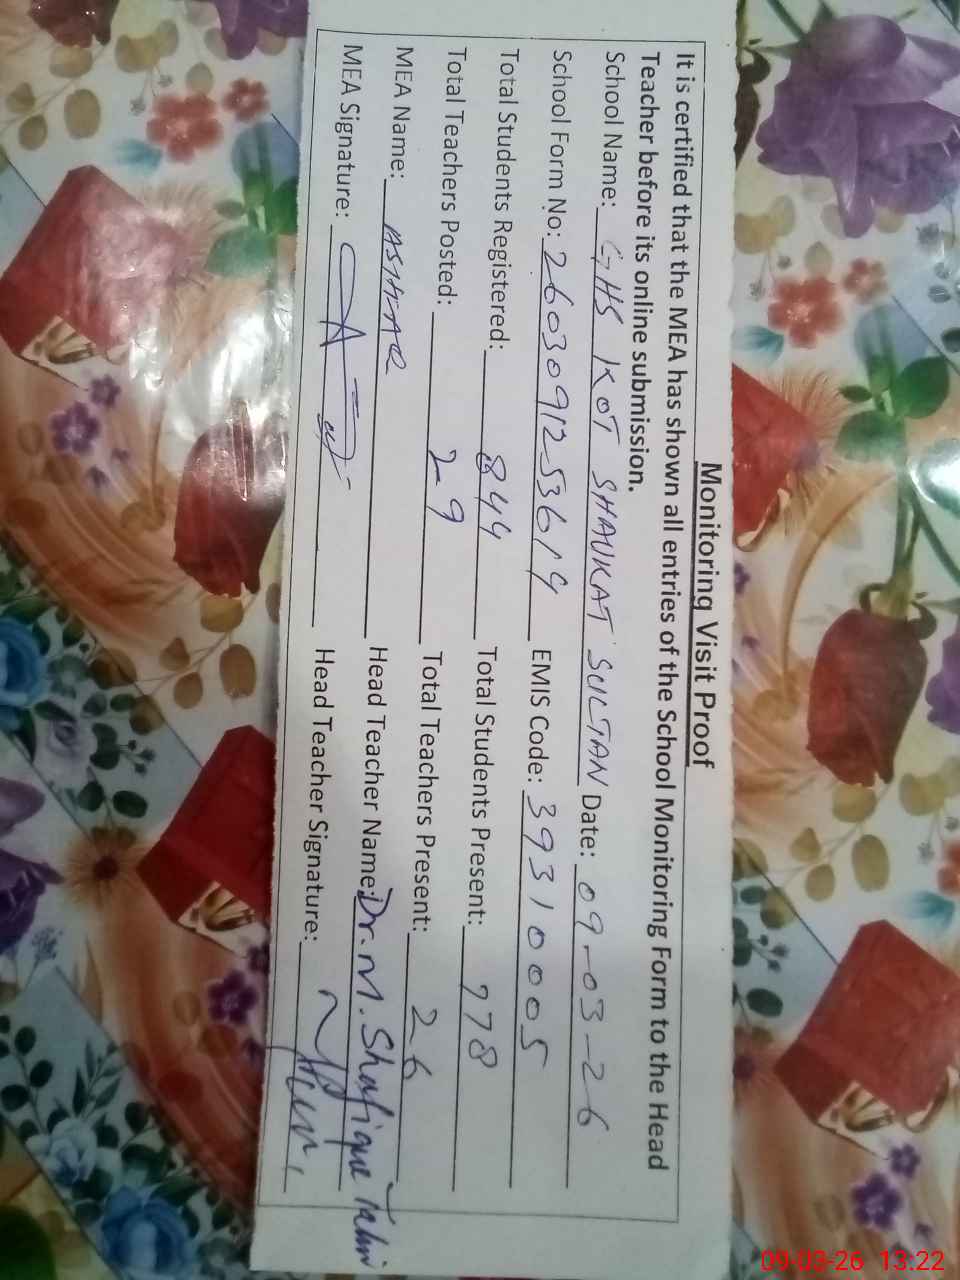 Monitoring Visit Proof
It is certified that the MEA has shown all entries of the School Monitoring Form to the Head
Teacher before its online submission.
School Name: GHS KOT SHAUKAT SULTAN Date: 09-03-26
School Form No: 2603091253619 EMIS Code: 39310005
Total Students Registered: 844 Total Students Present: 778
Total Teachers Posted: 29 Total Teachers Present: 26
MEA Name: Head Teacher Name: Dr. M. Shafique Tahir
MEA Signature: Head Teacher Signature:
09-03-26 13:22